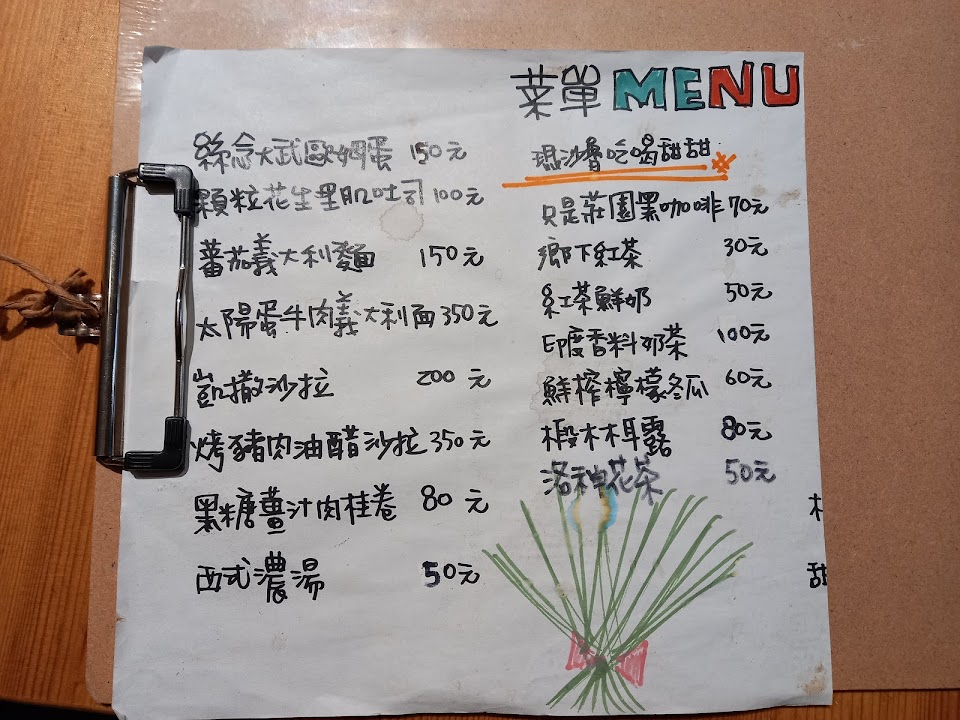 菜單 MENU
絲念大武歐姆蛋 150元
顆粒花生里肌吐司 100元
蕃茄義大利麵 150元
太陽蛋牛肉義大利面 350元
凱撒沙拉 200元
烤豬肉油醋沙拉 350元
黑糖薑汁肉桂卷 80元
西式濃湯 50元
琨沙魯吃喝甜甜
只是莊園黑咖啡 70元
鄉下紅茶 30元
紅茶鮮奶 50元
印度香料奶茶 100元
鮮榨檸檬冬瓜 60元
椴木木耳露 80元
洛神花茶 50元
甜